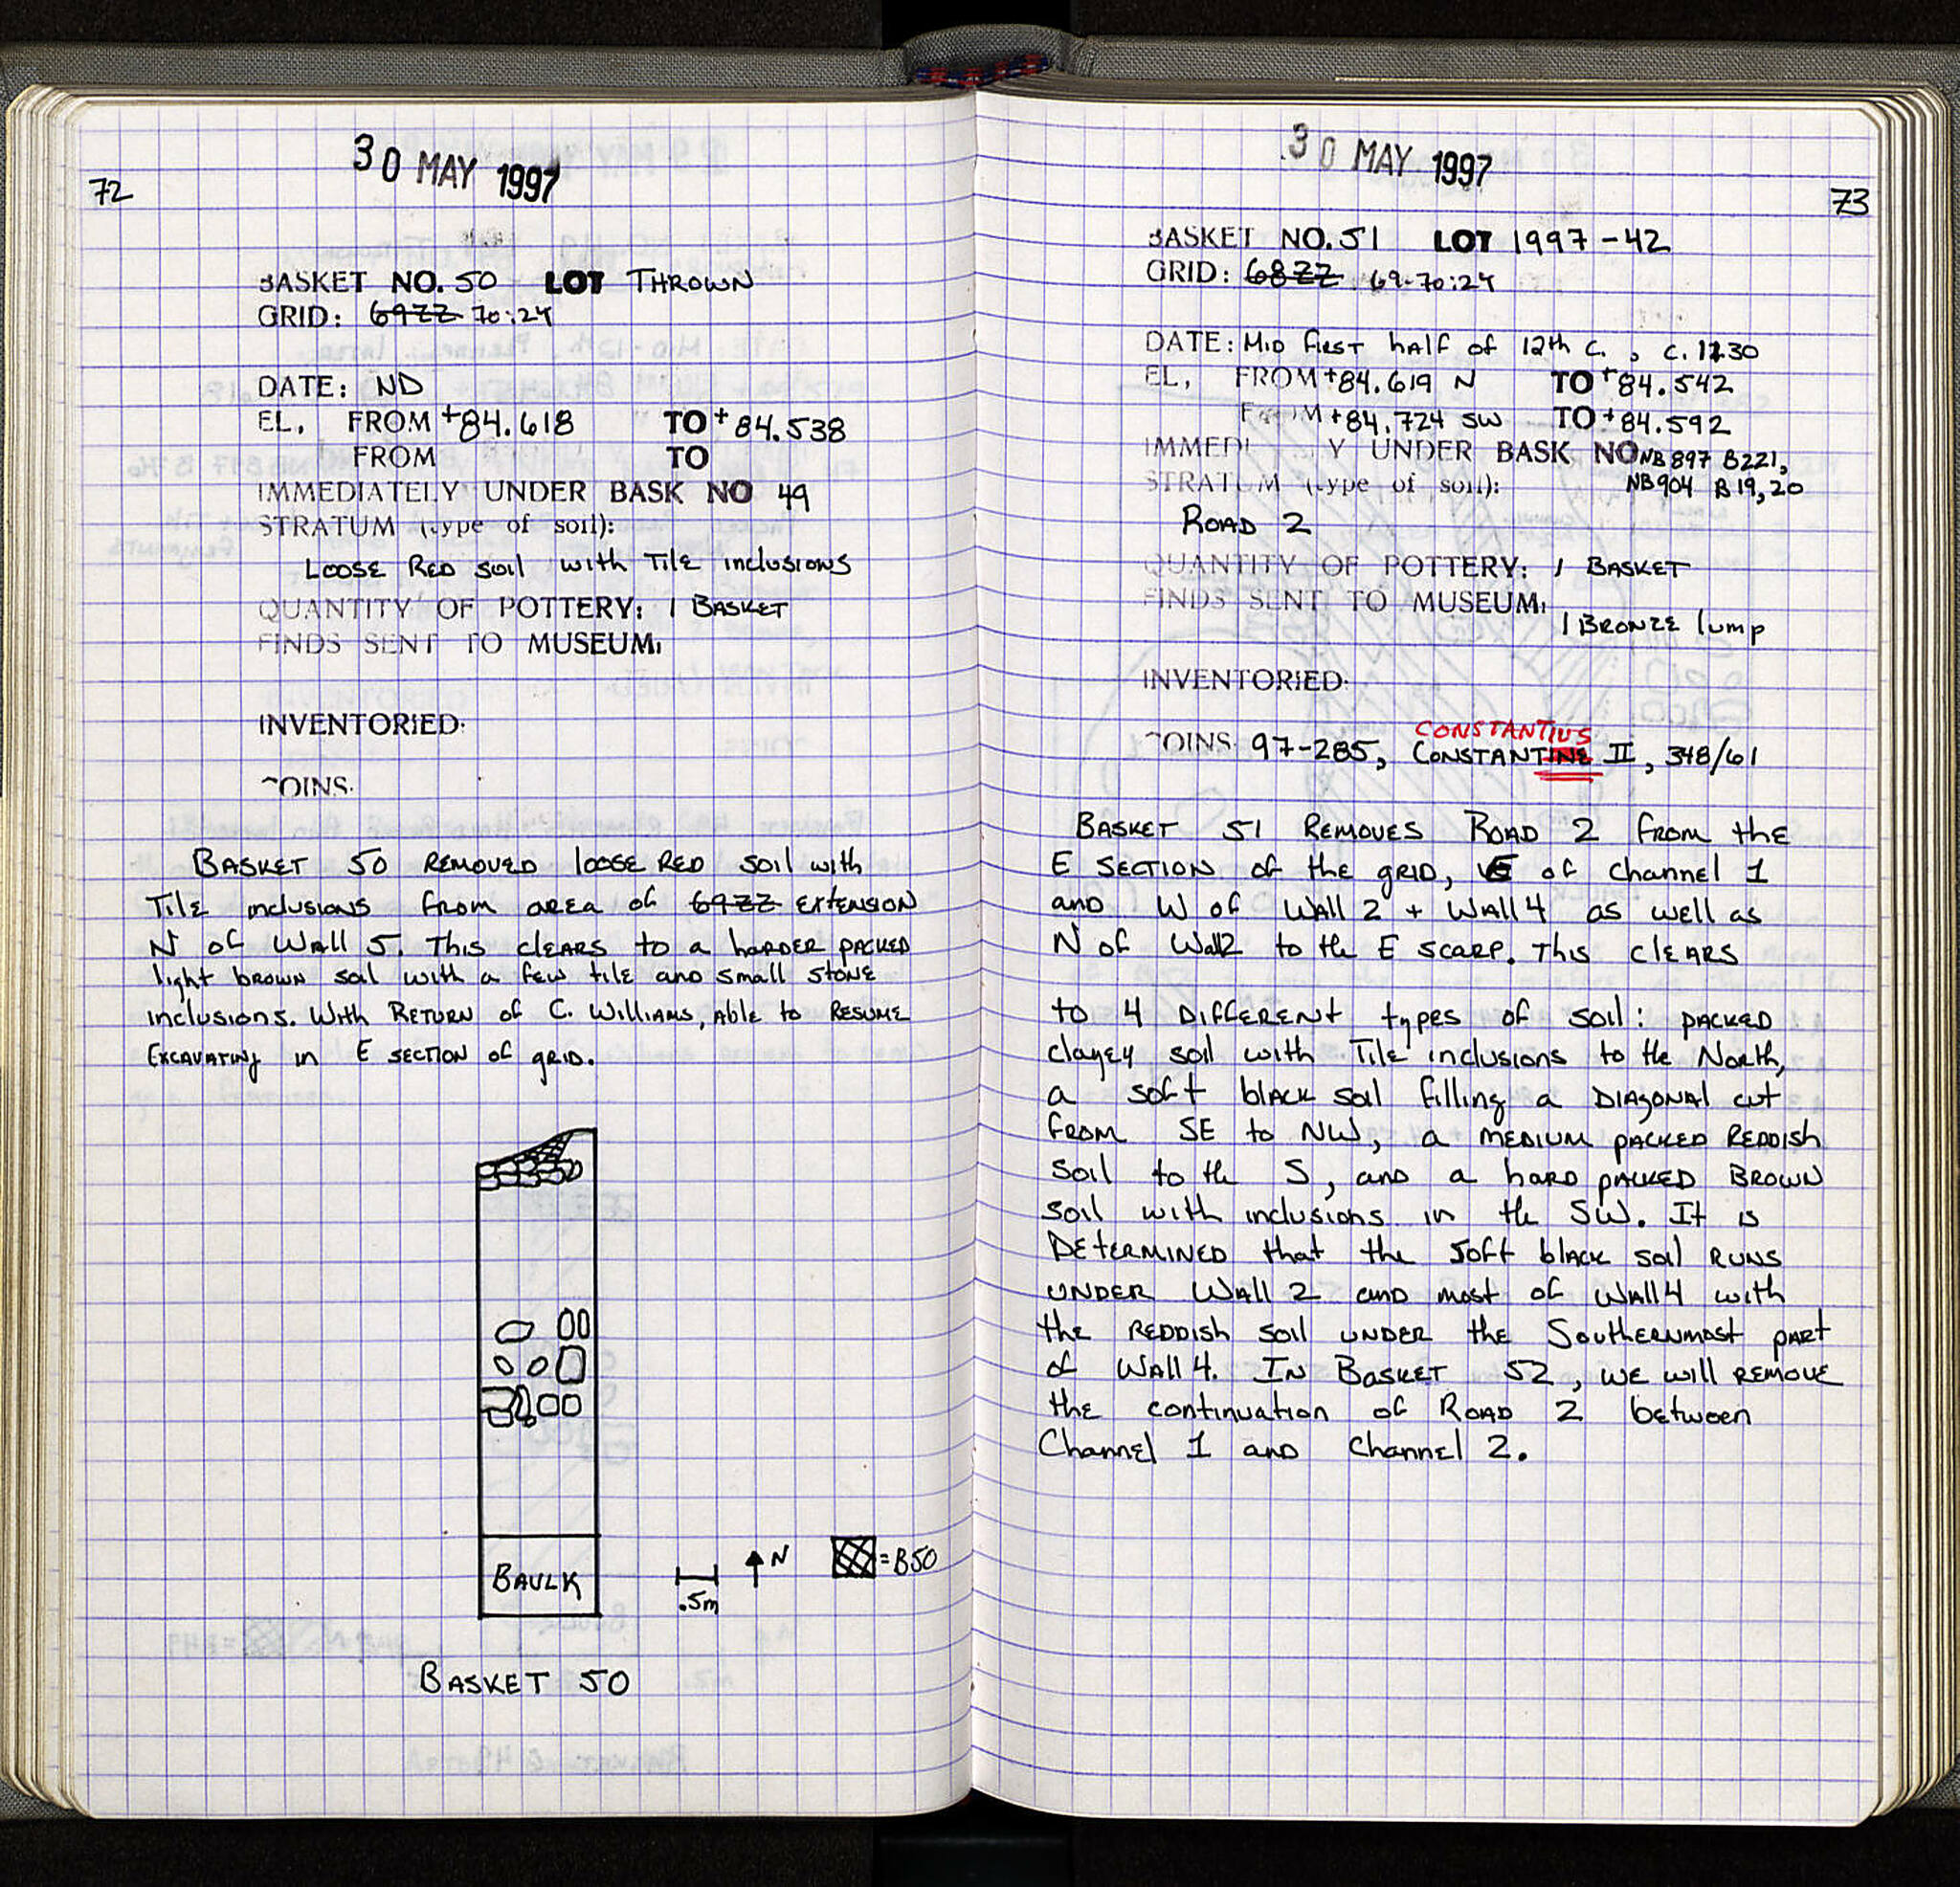 30 MAY 1997
72
BASKET NO. 50 LOT THROWN
GRID: 69ZZ 70:24
DATE: ND
EL, FROM +84.618 TO +84.538
FROM TO
IMMEDIATELY UNDER BASK NO 49
STRATUM (type of soil):
LOOSE RED SOIL with TILE INCLUSIONS
QUANTITY OF POTTERY: 1 BASKET
FINDS SENT TO MUSEUM:
INVENTORIED:
COINS:
BASKET 50 REMOVED LOOSE RED SOIL with
TILE INCLUSIONS from area of 69ZZ EXTENSION
N of WALL 5. This clears to a harder packed
light brown soil with a few tile and small stone
inclusions. With RETURN of C. Williams, Able to RESUME
Excavating in E section of grid.
BAULK
.5m
N
=B50
BASKET 50
30 MAY 1997
73
BASKET NO. 51 LOT 1997-42
GRID: 68ZZ 69-70:24
DATE: MID first half of 12th C., c. 1130
EL, FROM +84.619 N TO +84.542
FROM +84.724 SW TO +84.592
IMMEDI Y UNDER BASK NO NB 897 B221,
STRATUM (type of soil): NB904 B19,20
ROAD 2
QUANTITY OF POTTERY: 1 BASKET
FINDS SENT TO MUSEUM:
1 BRONZE lump
INVENTORIED:
CONSTANTIUS
COINS: 97-285, CONSTANTINE II, 348/61
BASKET 51 REMOVES ROAD 2 from the
E SECTION of the grid, E of Channel 1
and W of WALL 2 + WALL 4 as well as
N of Wall 2 to the E scarp. This clears
to 4 DIFFERENT types of soil: packed
clayey soil with Tile inclusions to the North,
a soft black soil filling a DIAGONAL cut
from SE to NW, a MEDIUM packed REDDISH
soil to the S, and a hard packed BROWN
soil with inclusions in the SW. It is
DETERMINED that the soft black soil RUNS
UNDER Wall 2 and most of Wall 4 with
the REDDISH soil UNDER the Southernmost part
of Wall 4. In Basket 52, we will remove
the continuation of Road 2 between
Channel 1 and Channel 2.